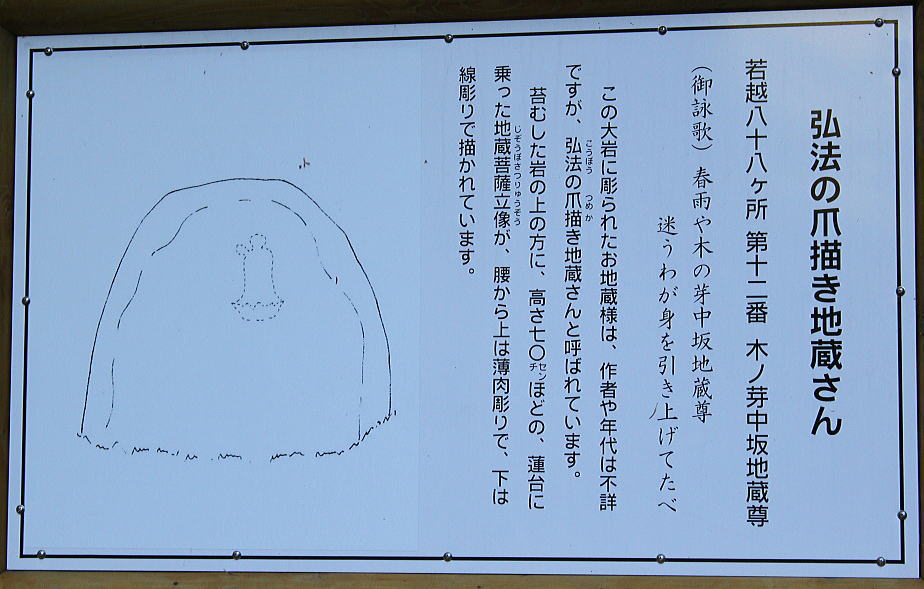 弘法の爪描き地蔵さん
若越八十八ヶ所 第十二番 木ノ芽中坂地蔵尊
(御詠歌) 春雨や木の芽中坂地蔵尊
迷うわが身を引き上げてたべ
この大岩に彫られたお地蔵様は、作者や年代は不詳
ですが、弘法の爪描き地蔵さんと呼ばれています。
苔むした岩の上の方に、高さ七〇センチほどの、蓮台に
乗った地蔵菩薩立像が、腰から上は薄肉彫りで、下は
線彫りで描かれています。